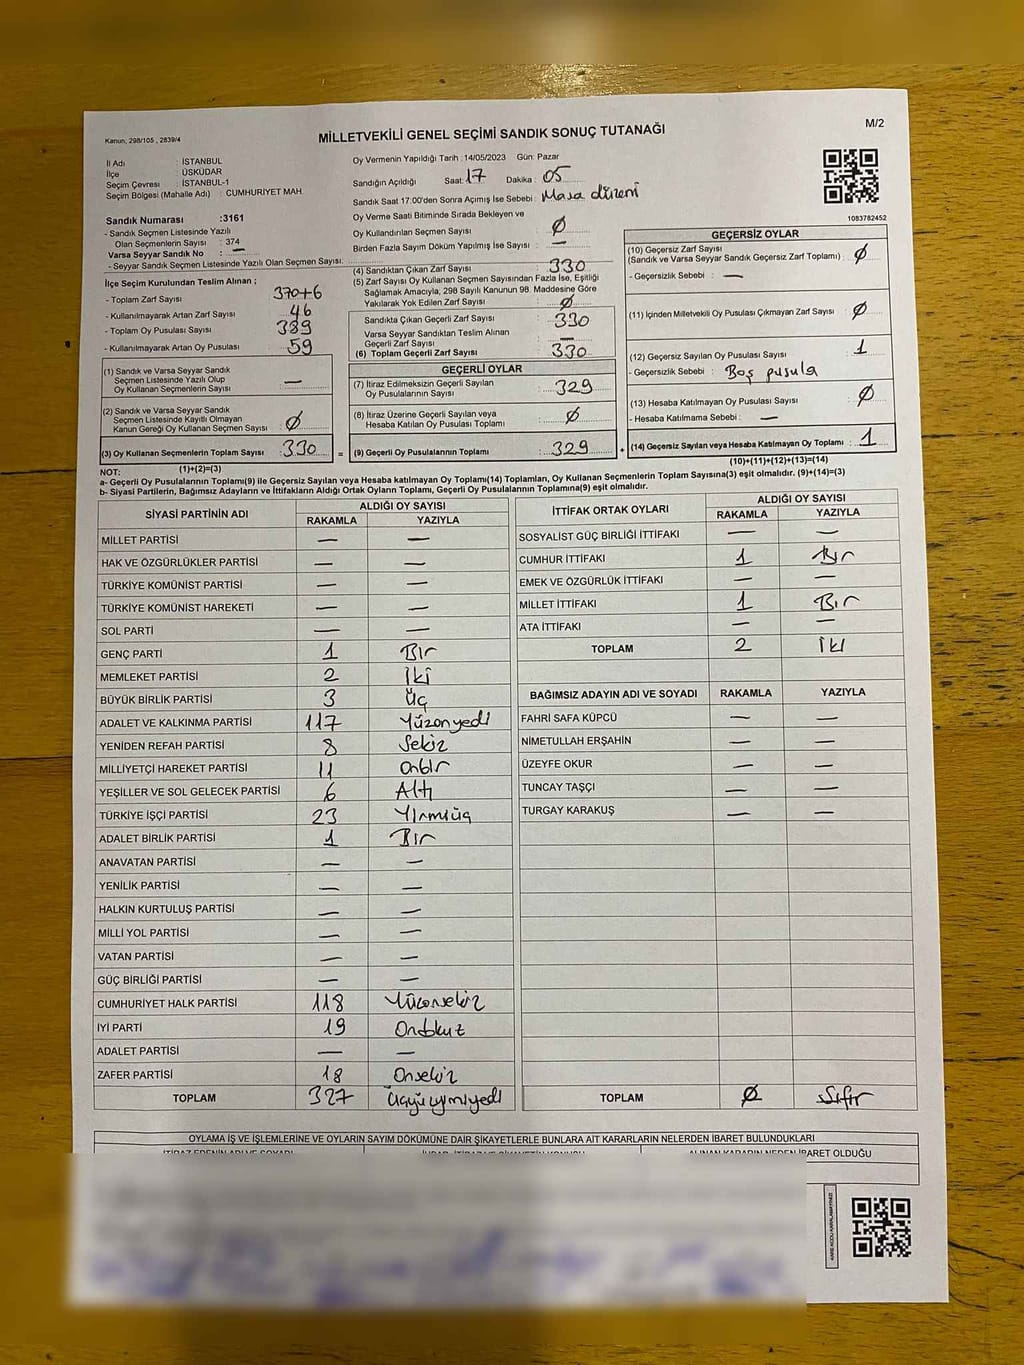 Kanun; 298/105 , 2839/4
MİLLETVEKİLİ GENEL SEÇİMİ SANDIK SONUÇ TUTANAĞI
M/2
İl Adı : İSTANBUL
İlçe : ÜSKÜDAR
Seçim Çevresi : İSTANBUL-1
Seçim Bölgesi (Mahalle Adı) : CUMHURİYET MAH.
Sandık Numarası :3161
- Sandık Seçmen Listesinde Yazılı
Olan Seçmenlerin Sayısı : 374
Varsa Seyyar Sandık No : —
- Seyyar Sandık Seçmen Listesinde Yazılı Olan Seçmen Sayısı:
İlçe Seçim Kurulundan Teslim Alınan ;
- Toplam Zarf Sayısı 370+6
- Kullanılmayarak Artan Zarf Sayısı 46
- Toplam Oy Pusulası Sayısı 389
- Kullanılmayarak Artan Oy Pusulası 59
(1) Sandık ve Varsa Seyyar Sandık
Seçmen Listesinde Yazılı Olup
Oy Kullanan Seçmenlerin Sayısı —
(2) Sandık ve Varsa Seyyar Sandık
Seçmen Listesinde Kayıtlı Olmayan
Kanun Gereği Oy Kullanan Seçmen Sayısı Ø
(3) Oy Kullanan Seçmenlerin Toplam Sayısı : 330
(1)+(2)=(3)
Oy Vermenin Yapıldığı Tarih :14/05/2023 Gün: Pazar
Sandığın Açıldığı Saat: 17 Dakika : 05
Sandık Saat 17:00'den Sonra Açımış İse Sebebi : Masa düzeni
Oy Verme Saati Bitiminde Sırada Bekleyen ve
Oy Kullandırılan Seçmen Sayısı : Ø
Birden Fazla Sayım Döküm Yapılmış İse Sayısı : —
(4) Sandıktan Çıkan Zarf Sayısı : 330
(5) Zarf Sayısı Oy Kullanan Seçmen Sayısından Fazla İse, Eşitliği
Sağlamak Amacıyla, 298 Sayılı Kanunun 98. Maddesine Göre
Yakılarak Yok Edilen Zarf Sayısı : Ø
Sandıkta Çıkan Geçerli Zarf Sayısı : 330
Varsa Seyyar Sandıktan Teslim Alınan
Geçerli Zarf Sayısı : —
(6) Toplam Geçerli Zarf Sayısı : 330
GEÇERLİ OYLAR
(7) İtiraz Edilmeksizin Geçerli Sayılan
Oy Pusulalarının Sayısı : 329
(8) İtiraz Üzerine Geçerli Sayılan veya
Hesaba Katılan Oy Pusulası Toplamı : Ø
= (9) Geçerli Oy Pusulalarının Toplamı : 329 +
1083782452
GEÇERSİZ OYLAR
(10) Geçersiz Zarf Sayısı
(Sandık ve Varsa Seyyar Sandık Geçersiz Zarf Toplamı) : Ø
- Geçersizlik Sebebi : —
(11) İçinden Milletvekili Oy Pusulası Çıkmayan Zarf Sayısı : Ø
(12) Geçersiz Sayılan Oy Pusulası Sayısı : 1
- Geçersizlik Sebebi : Boş pusula
(13) Hesaba Katılmayan Oy Pusulası Sayısı : Ø
- Hesaba Katılmama Sebebi : —
(14) Geçersiz Sayılan veya Hesaba Katılmayan Oy Toplamı : 1
(10)+(11)+(12)+(13)=(14)
NOT:
a- Geçerli Oy Pusulalarının Toplamı(9) ile Geçersiz Sayılan veya Hesaba katılmayan Oy Toplamı(14) Toplamları, Oy Kullanan Seçmenlerin Toplam Sayısına(3) eşit olmalıdır. (9)+(14)=(3)
b- Siyasi Partilerin, Bağımsız Adayların ve İttifakların Aldığı Ortak Oyların Toplamı, Geçerli Oy Pusulalarının Toplamına(9) eşit olmalıdır.
SİYASİ PARTİNİN ADI ALDIĞI OY SAYISI
RAKAMLA YAZIYLA
MİLLET PARTİSİ — —
HAK VE ÖZGÜRLÜKLER PARTİSİ — —
TÜRKİYE KOMÜNİST PARTİSİ — —
TÜRKİYE KOMÜNİST HAREKETİ — —
SOL PARTİ — —
GENÇ PARTİ 1 Bir
MEMLEKET PARTİSİ 2 İki
BÜYÜK BİRLİK PARTİSİ 3 Üç
ADALET VE KALKINMA PARTİSİ 117 Yüzonyedi
YENİDEN REFAH PARTİSİ 8 Sekiz
MİLLİYETÇİ HAREKET PARTİSİ 11 Onbir
YEŞİLLER VE SOL GELECEK PARTİSİ 6 Altı
TÜRKİYE İŞÇİ PARTİSİ 23 Yirmiüç
ADALET BİRLİK PARTİSİ 1 Bir
ANAVATAN PARTİSİ — —
YENİLİK PARTİSİ — —
HALKIN KURTULUŞ PARTİSİ — —
MİLLİ YOL PARTİSİ — —
VATAN PARTİSİ — —
GÜÇ BİRLİĞİ PARTİSİ — —
CUMHURİYET HALK PARTİSİ 118 Yüzonsekiz
İYİ PARTİ 19 Ondokuz
ADALET PARTİSİ — —
ZAFER PARTİSİ 18 Onsekiz
TOPLAM 327 Üçyüzyirmiyedi
İTTİFAK ORTAK OYLARI ALDIĞI OY SAYISI
RAKAMLA YAZIYLA
SOSYALİST GÜÇ BİRLİĞİ İTTİFAKI — —
CUMHUR İTTİFAKI 1 Bir
EMEK VE ÖZGÜRLÜK İTTİFAKI — —
MİLLET İTTİFAKI 1 Bir
ATA İTTİFAKI — —
TOPLAM 2 İki
BAĞIMSIZ ADAYIN ADI VE SOYADI RAKAMLA YAZIYLA
FAHRİ SAFA KÜPCÜ — —
NİMETULLAH ERŞAHİN — —
ÜZEYFE OKUR — —
TUNCAY TAŞÇI — —
TURGAY KARAKUŞ — —
TOPLAM Ø Sıfır
OYLAMA İŞ VE İŞLEMLERİNE VE OYLARIN SAYIM DÖKÜMÜNE DAİR ŞİKAYETLERLE BUNLARA AİT KARARLARIN NELERDEN İBARET BULUNDUKLARI
ALINAN KARARIN NEDEN İBARET OLDUĞU